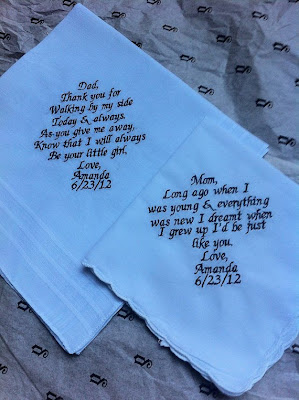 Dad,
Thank you for
Walking by my side
Today & always.
As you give me away,
Know that I will always
Be your little girl.
Love,
Amanda
6/23/12
Mom,
Long ago when I
was young & everything
was new I dreamt when
I grew up I'd be just
like you.
Love,
Amanda
6/23/12